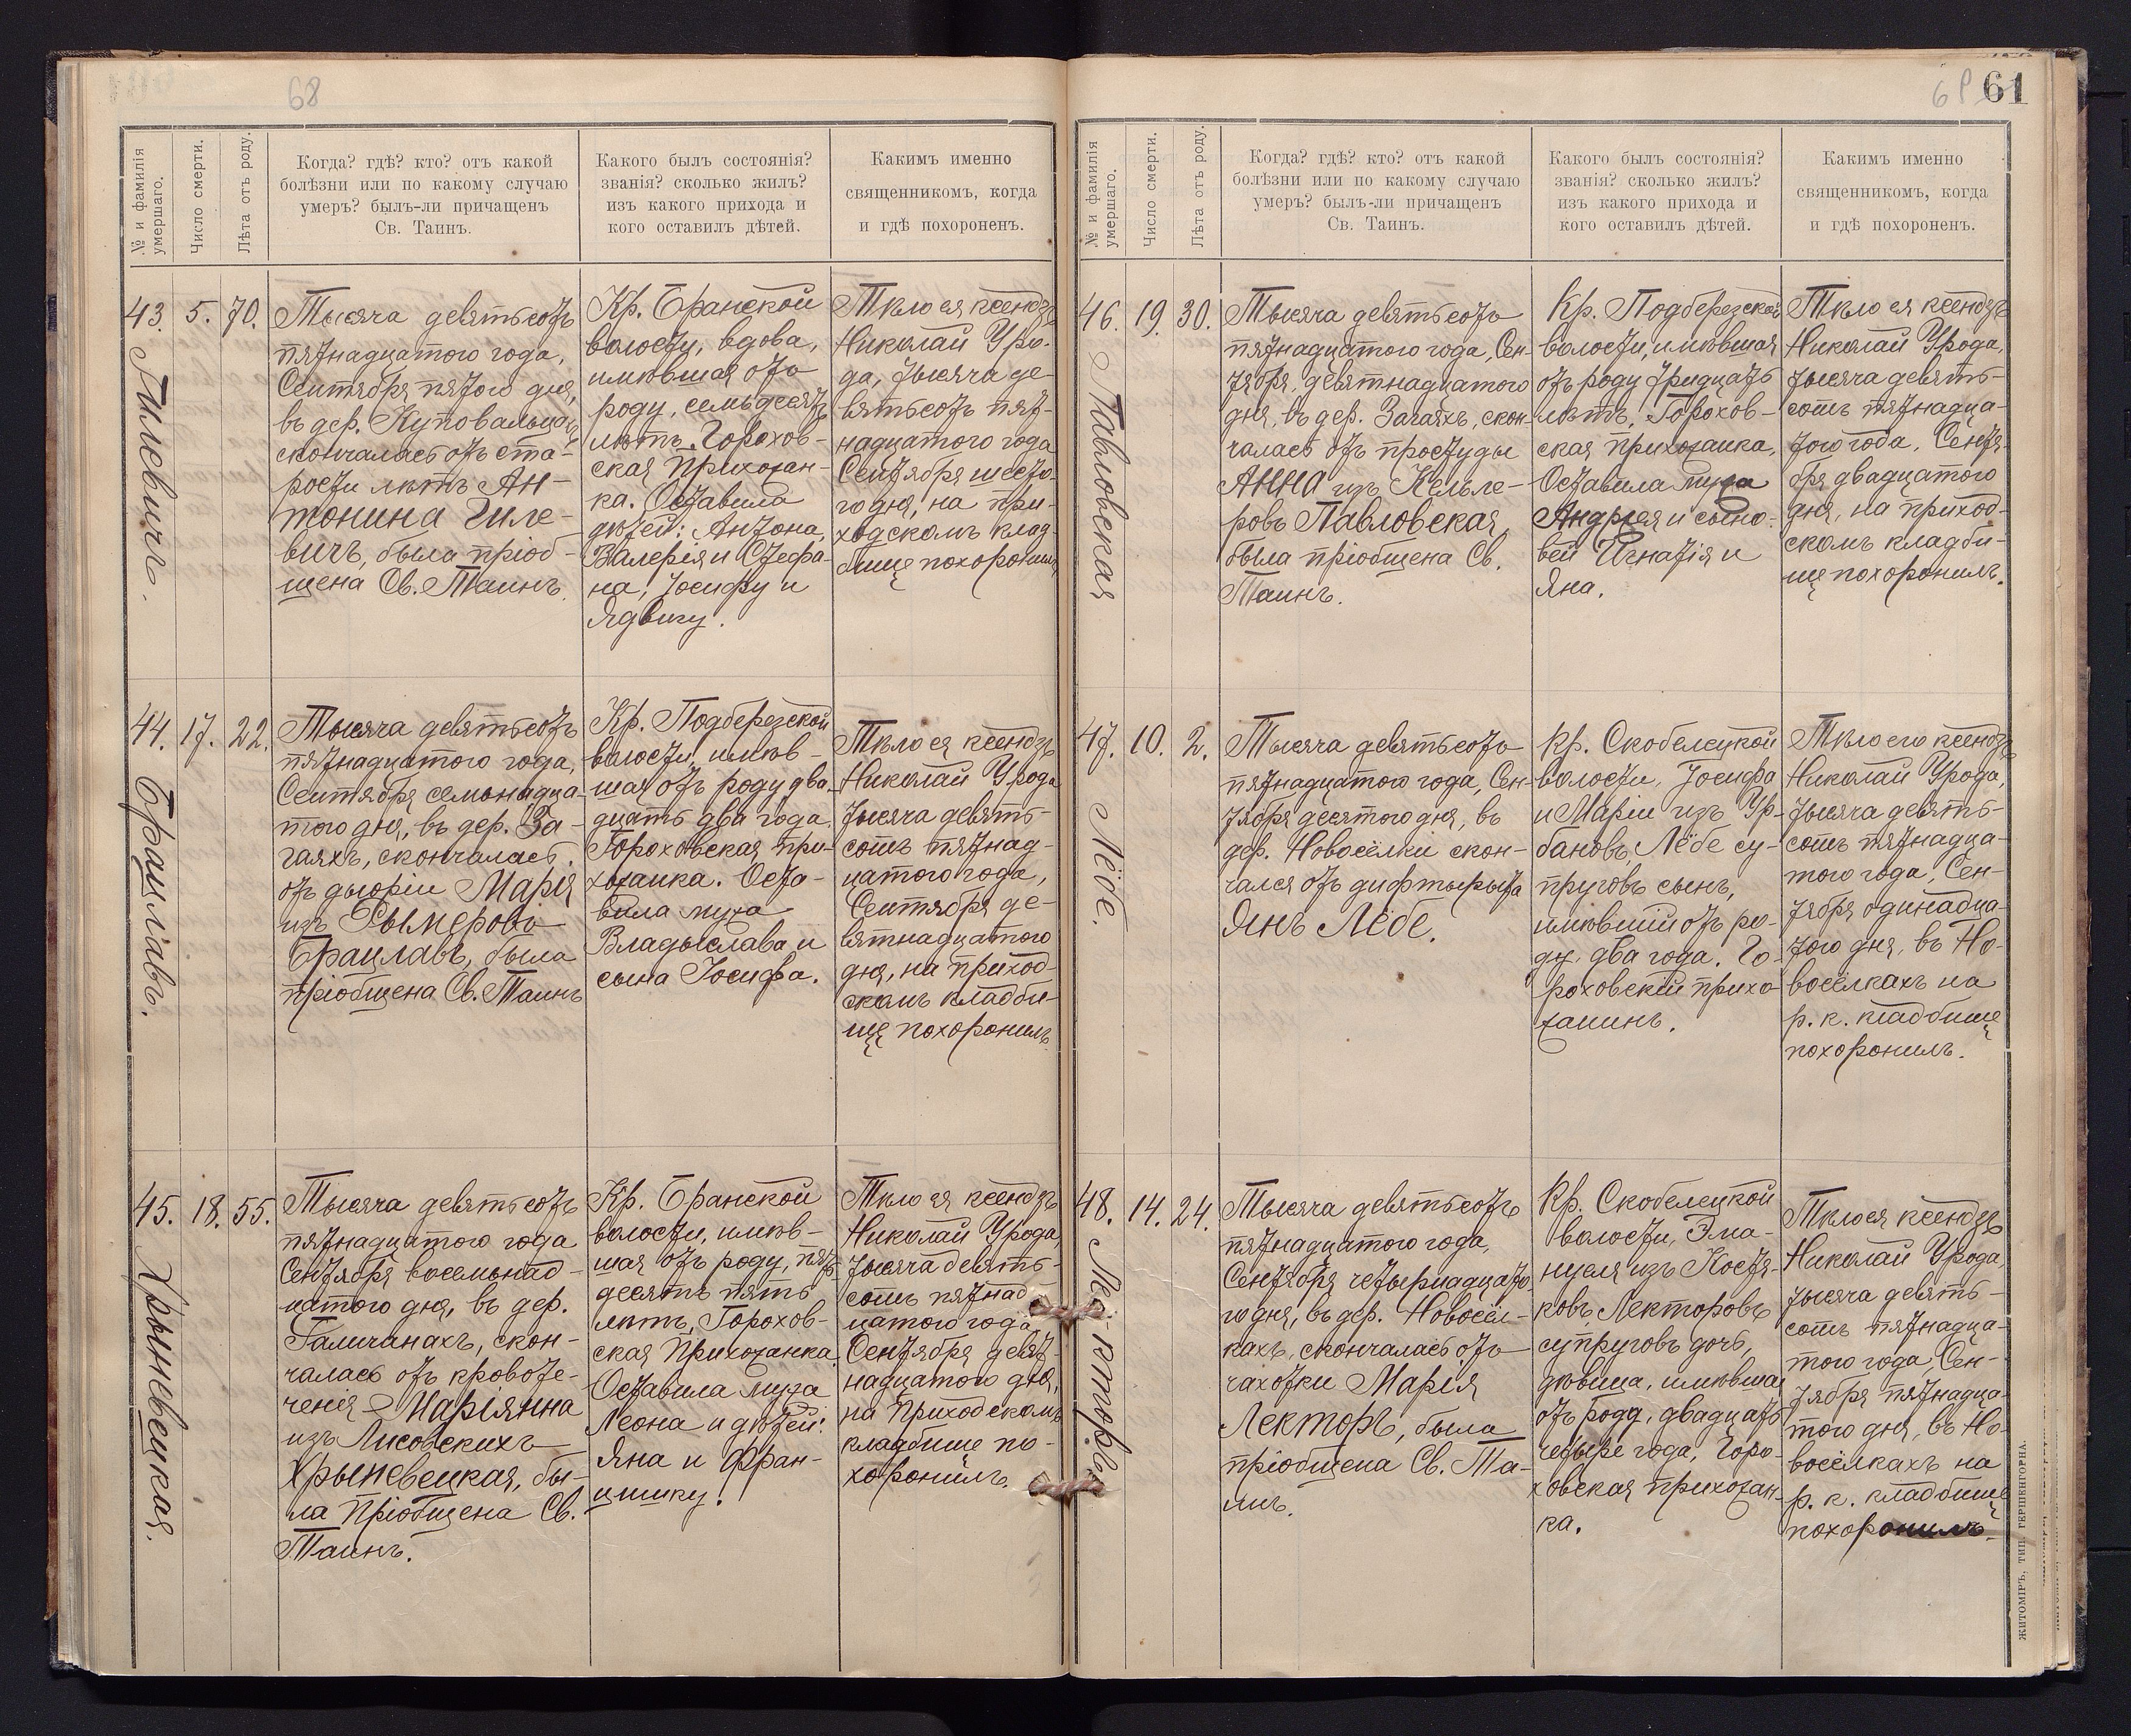 68
№ и фамилія умершаго.
Число смерти.
Лѣта отъ роду.
Когда? гдѣ? кто? отъ какой
болѣзни или по какому случаю
умеръ? былъ-ли причащенъ
Св. Таинъ.
Какого былъ состоянія?
званія? сколько жилъ?
изъ какого прихода и
кого оставилъ дѣтей.
Какимъ именно
священникомъ, когда
и гдѣ похороненъ.
43. Гилевичъ.
5.
70.
Тысяча девятьсотъ
пятнадцатого года,
Сентября пятого дня,
въ дер. Куповальцахъ
скончалась отъ ста-
рости лѣтъ Ан-
тонина Гиле-
вичъ, была пріоб-
щена Св. Таинъ.
Кр. Бранской
волости, вдова,
имѣвшая отъ
роду, семьдесятъ
лѣтъ. Горохов-
ская прихожан-
ка. Оставила
дѣтей: Антона,
Валерія и Стефа-
на, Іосифу и
Ядвигу.
Тѣло ея ксендзъ
Николай Уро-
да, тысяча де-
вятьсотъ пят-
надцатого года
Сентября шесто-
го дня, на при-
ходскомъ клад-
бищѣ похоронилъ
44. Брацлавъ.
17.
22.
Тысяча девятьсотъ
пятнадцатого года,
Сентября семьнадца-
того дня, въ дер. За-
гаяхъ, скончалась
отъ дыоріи Марія
изъ Рымеровъ
Брацлавъ, была
пріобщена Св. Таинъ
Кр. Подберезской
волости, имѣв-
шая отъ роду два-
дцать два года.
Гороховская при-
хожанка. Оста-
вила мужа
Владыслава и
сына Іосифа.
Тѣло ея ксендзъ
Николай Урода
тысяча девять-
сотъ пятнад-
цатого года,
Сентября де-
вятнадцатого
дня, на приход-
скомъ кладби-
щѣ похоронилъ
45. Хрыневецкая.
18.
55.
Тысяча девятьсотъ
пятнадцатого года
Сентября восемьнад-
цатого дня, въ дер.
Галичанахъ, скон-
чалась отъ кровоте-
ченія Маріянна
изъ Лисовскихъ
Хрыневецкая, бы-
ла пріобщена Св.
Таинъ.
Кр. Бранской
волости, имѣв-
шая отъ роду, пять-
десятъ пять
лѣтъ, Горохов-
ская прихожанка.
Оставила мужа
Леона и дѣтей:
Яна и Фран-
цишку.
Тѣло ея ксендзъ
Николай Урода,
тысяча девять-
сотъ пятнад-
цатого года,
Сентября девят-
надцатого дня,
на приходскомъ
кладбищѣ по-
хоронилъ.
61
№ и фамилія умершаго.
Число смерти.
Лѣта отъ роду.
Когда? гдѣ? кто? отъ какой
болѣзни или по какому случаю
умеръ? былъ-ли причащенъ
Св. Таинъ.
Какого былъ состоянія?
званія? сколько жилъ?
изъ какого прихода и
кого оставилъ дѣтей.
Какимъ именно
священникомъ, когда
и гдѣ похороненъ.
46. Павловская
19.
30.
Тысяча девятьсотъ
пятнадцатого года, Сен-
тября, девятнадцатого
дня, въ дер. Загаяхъ, скон-
чалась отъ простуды
Анна изъ Кельле-
ровъ Павловская,
была пріобщена Св.
Таинъ.
Кр. Подберезской
волости, имѣвшая
отъ роду тридцать
лѣтъ. Горохов-
ская прихожанка.
Оставила мужа
Андрея и сыно-
вей Игнатія и
Яна.
Тѣло ея ксендзъ
Николай Урода,
тысяча девять-
сотъ пятнадца-
того года, Сентя-
бря двадцатого
дня, на приход-
скомъ кладби-
щѣ похоронилъ.
47. Лёбе.
10.
2.
Тысяча девятьсотъ
пятнадцатого года, Сен-
тября десятого дня, въ
дер. Новосёлки скон-
чался отъ дифтырыта
Янъ Лёбе.
Кр. Скобелецкой
волости, Іосифа
и Маріи изъ Ур-
бановъ, Лёбе су-
пруговъ сынъ,
имѣвшій отъ ро-
ду, два года. Го-
роховскій прихо-
жанинъ.
Тѣло его ксендзъ
Николай Урода,
тысяча девять-
сотъ пятнадца-
того года, Сен-
тября одинадца-
того дня, въ Но-
восёлкахъ на
р. к. кладбищѣ
похоронилъ.
48. Лекторъ
14.
24.
Тысяча девятьсотъ
пятнадцатого года,
Сентября четырнадцато-
го дня, въ дер. Новосёл-
кахъ, скончалась отъ
чахотки Марія
Лекторъ, была
пріобщена Св. Та-
инъ.
Кр. Скобелецкой
волости, Эма-
нуеля изъ Костя-
ковъ, Лекторовъ
супруговъ дочь,
дѣвица, имѣвшая
отъ роду, двадцать
четыре года, Горо-
ховская прихожан-
ка.
Тѣло ея ксендзъ
Николай Урода,
тысяча девять-
сотъ пятнадца-
того года, Сен-
тября пятнадца-
того дня, въ Но-
восёлкахъ на
р. к. кладбищѣ
похоронилъ.
ЖИТОМІРЪ, ТИП. ГЕРШЕНГОРНА.